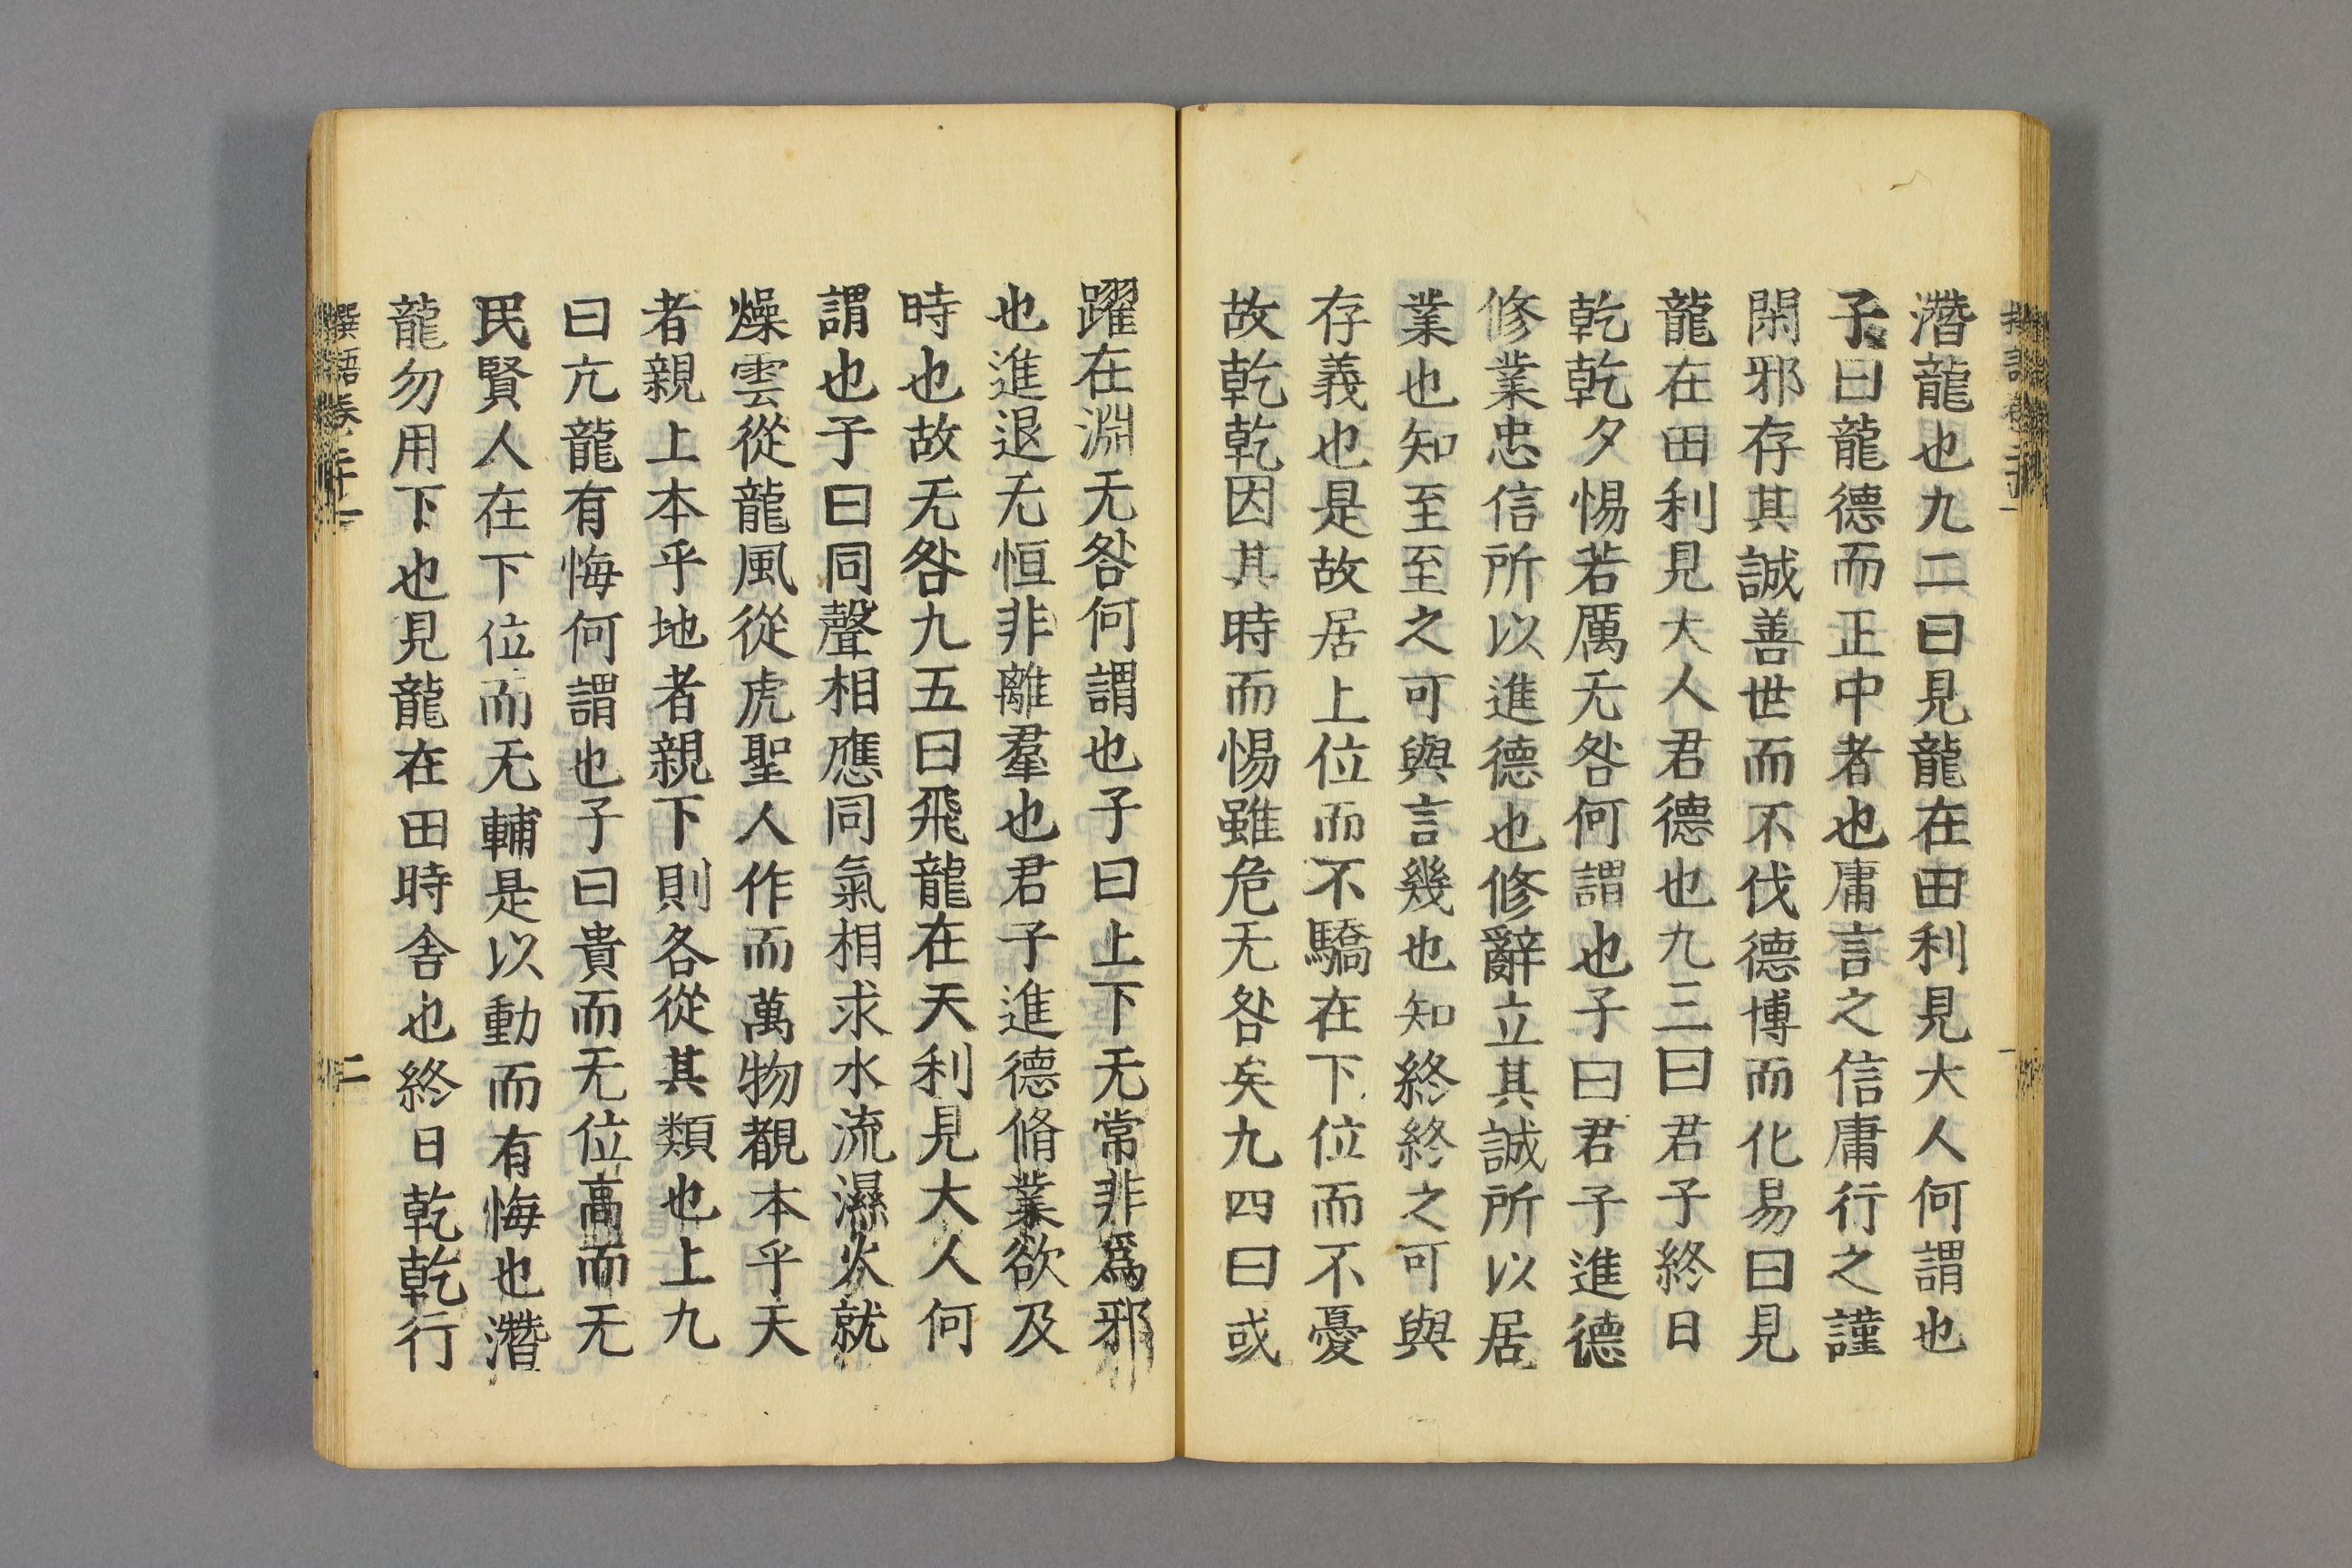 潛龍也九二曰見龍在田利見大人何謂也
子曰龍德而正中者也庸言之信庸行之謹
閑邪存其誠善世而不伐德博而化易曰見
龍在田利見大人君德也九三曰君子終日
乾乾夕惕若厲无咎何謂也子曰君子進德
修業忠信所以進德也修辭立其誠所以居
業也知至至之可與言幾也知終終之可與
存義也是故居上位而不驕在下位而不憂
故乾乾因其時而惕雖危无咎矣九四曰或
躍在淵无咎何謂也子曰上下无常非爲邪
也進退无恒非離羣也君子進德脩業欲及
時也故无咎九五曰飛龍在天利見大人何
謂也子曰同聲相應同氣相求水流濕火就
燥雲從龍風從虎聖人作而萬物覩本乎天
者親上本乎地者親下則各從其類也上九
曰亢龍有悔何謂也子曰貴而无位高而无
民賢人在下位而无輔是以動而有悔也潛
龍勿用下也見龍在田時舍也終日乾乾行
撰語卷二十一 二